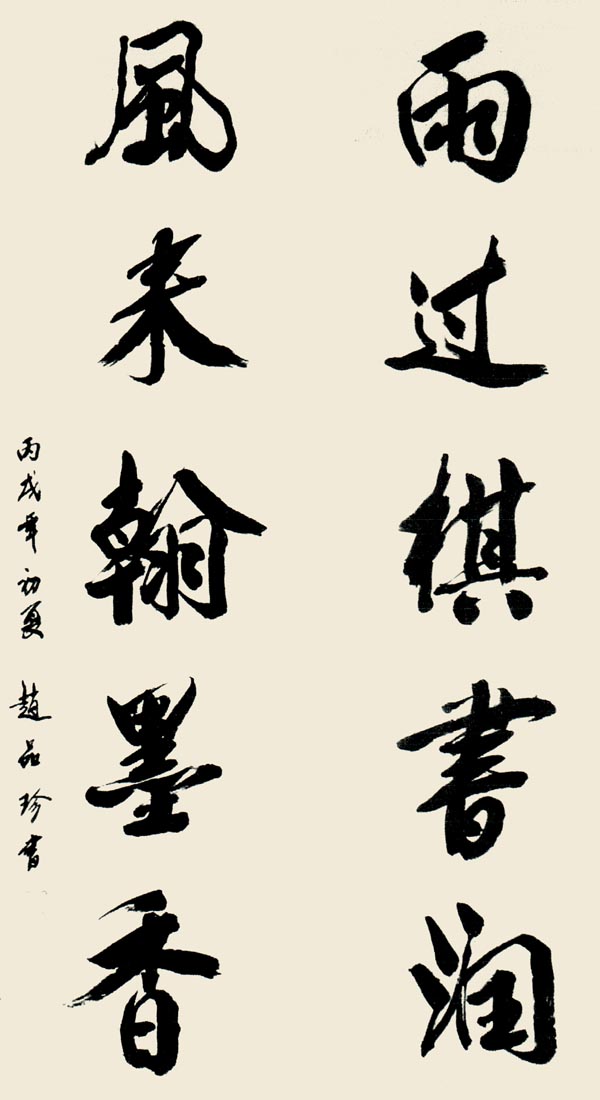 雨过棋书润
風来翰墨香
丙戌年初夏 趙品珍書